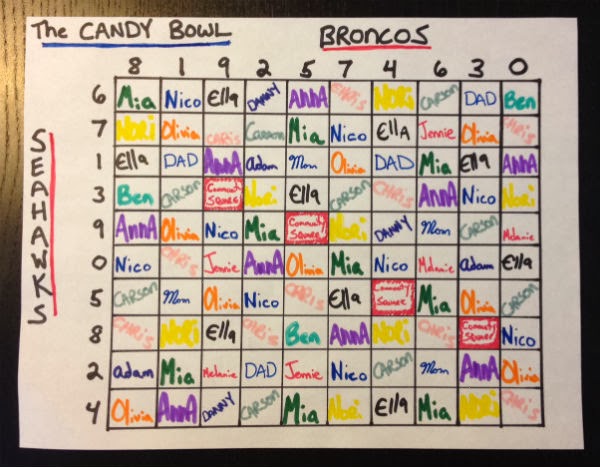 The CANDY BOWL BRONCOS
8 1 9 2 5 7 4 6 3 0
SEAHAWKS
6 Mia Nico Ella DANNY AnnA CHRis NORi CARSON DAD Ben
7 NORi Olivia CHRis Carson Mia Nico EllA Jennie Olivia CHRis
1 Ella DAD AnnA adam Mom Olivia DAD Mia Ella AnnA
3 Ben CARSON Community Square Nori Ella CARSON CHRIS AnnA Nico Nori
9 AnnA Olivia Nico Mia Community Square Nori DANNY Mom CARSON Melanie
0 Nico CHRis Jennie AnnA Olivia Mia Nico Melanie adam Ella
5 CARSON Mom Olivia Nico CHRis Ella Community Square Mia Olivia CARSON
8 CHRis NORi Ella CHRis Ben AnnA NORi CHRis Community Square Nico
2 adam Mia Melanie DAD Jennie Nico CARSON Mom AnnA Olivia
4 Olivia AnnA DANNY CARSON Mia Nori Ella Mia NORi CHRis